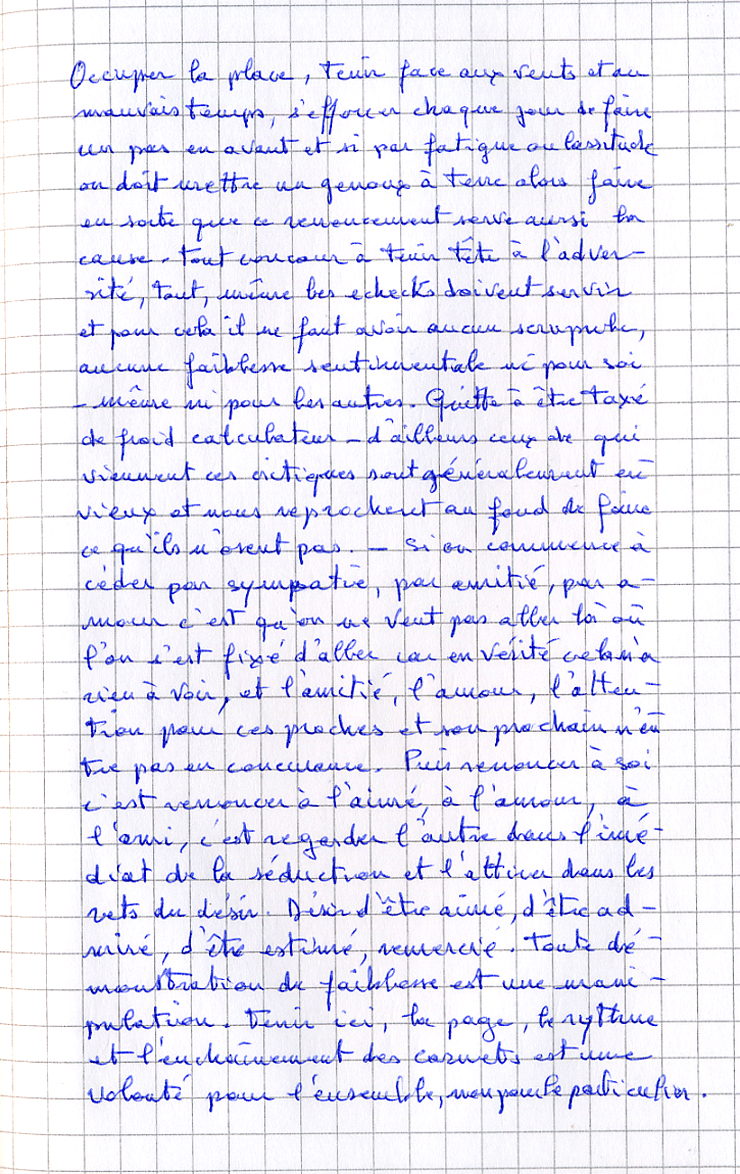 Occuper la place, tenir face aux vents et au
mauvais temps, s'efforcer chaque jour de faire
un pas en avant et si par fatigue ou lassitude
on doit mettre un genoux à terre alors faire
en sorte que ce renoncement serve aussi la
cause. Tout concour à tenir tête à l'adver-
sité, tout, même les echecks doivent servir
et pour cela il ne faut avoir aucun scrupule,
aucune faiblesse sentimentale ni pour soi
-même ni pour les autres. Quitte à être taxé
de froid calculateur - d'ailleurs ceux de qui
viennent ces critiques sont généralement en
vieux et nous reprochent au fond de faire
ce qu'ils n'osent pas. - Si on commence à
céder par sympatie, par amitié, par a-
mour c'est qu'on ne veut pas aller là où
l'on s'est fixé d'aller car en vérité cela n'a
rien à voir, et l'amitié, l'amour, l'atten-
tion pour ces proches et son prochain n'en
tre pas en concurence. Puis renoncer à soi
c'est renoncer à l'aimé, à l'amour, à
l'ami, c'est regarder l'autre dans l'imé-
diat de la séduction et l'attirer dans les
rets du désir. Désir d'être aimé, d'être ad-
miré, d'être estimé, remercié. Toute dé-
monstration de faiblesse est une mani-
pulation. Tenir ici, la page, le rythme
et l'enchaînement des carnets est une
volonté pour l'ensemble, non pour le particulier.